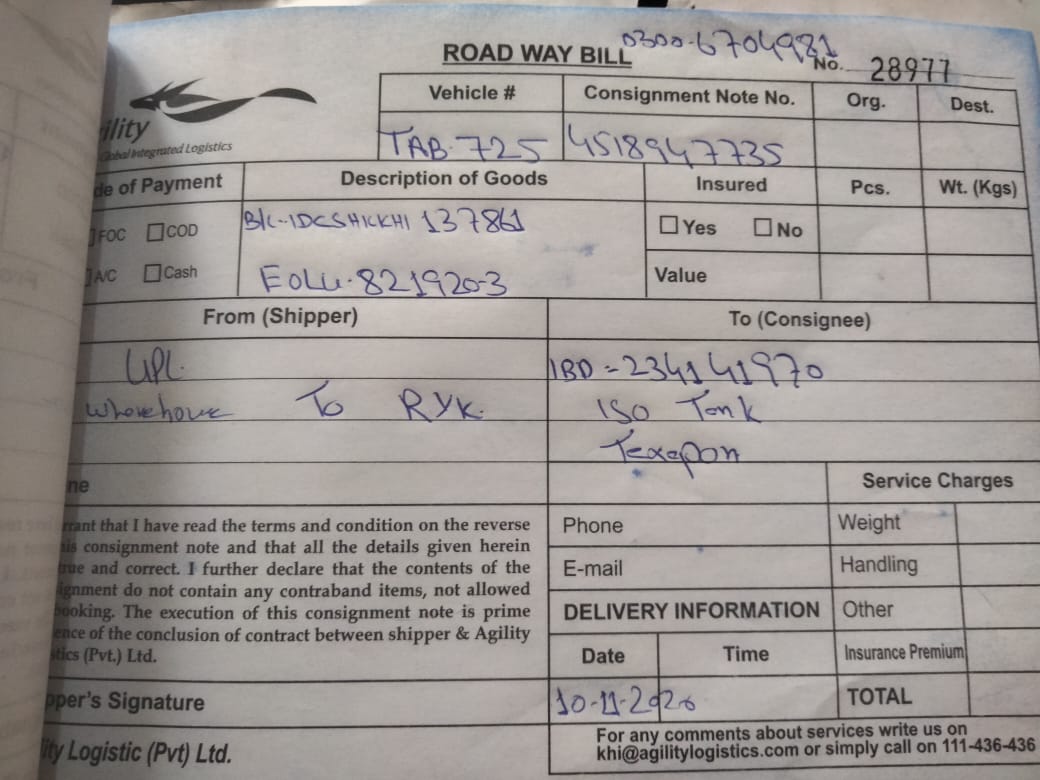 0300-6704981
ROAD WAY BILL
No. 28977
ility
Global Integrated Logistics
Vehicle # Consignment Note No. Org. Dest.
TAB-725 4518947735
de of Payment Description of Goods Insured Pcs. Wt. (Kgs)
FOC COD B/L-IDCSHKKHI 137861 Yes No
A/C Cash EOLU-8219203 Value
From (Shipper) To (Consignee)
UPL IBD = 234141970
Wharehouse To RYK. ISO Tank
Texapon
ne Service Charges
rrant that I have read the terms and condition on the reverse
is consignment note and that all the details given herein
rue and correct. I further declare that the contents of the
ignment do not contain any contraband items, not allowed
ooking. The execution of this consignment note is prime
ence of the conclusion of contract between shipper & Agility
stics (Pvt.) Ltd.
Phone Weight
E-mail Handling
DELIVERY INFORMATION Other
Date Time Insurance Premium
pper's Signature 10-11-2020 TOTAL
ity Logistic (Pvt) Ltd.
For any comments about services write us on
khi@agilitylogistics.com or simply call on 111-436-436